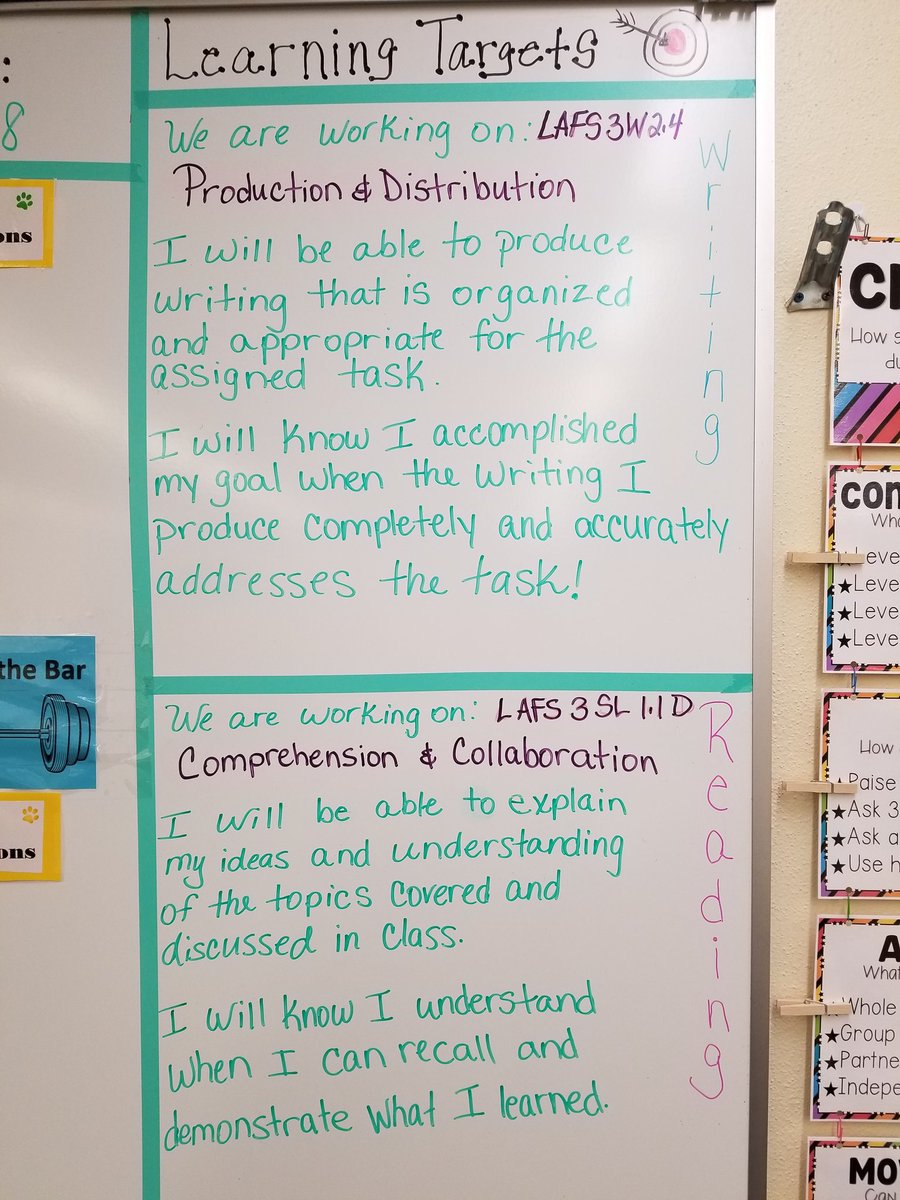 Learning Targets
:
8
We are working on: LAFS 3W2.4
Production & Distribution
I will be able to produce
writing that is organized
and appropriate for the
assigned task.
I will know I accomplished
my goal when the writing I
produce completely and accurately
addresses the task!
Writing
We are working on: LAFS 3 SL 1.1 D
Comprehension & Collaboration
I will be able to explain
my ideas and understanding
of the topics covered and
discussed in class.
I will know I understand
when I can recall and
demonstrate what I learned.
Reading
ons
the Bar
ons
How
Leve
Leve
Leve
Leve
How
Raise
Ask 3
Ask a
Use h
A
What
Whole
Group
Partne
Indepe
MO
Can